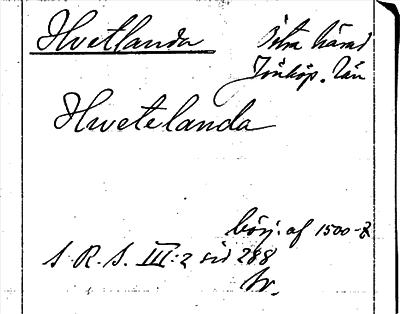 Hvetlanda Östra härad
Jönköp. län
Hwetelanda
börj. af 1500-t
S.R.S. III:2 sid 288